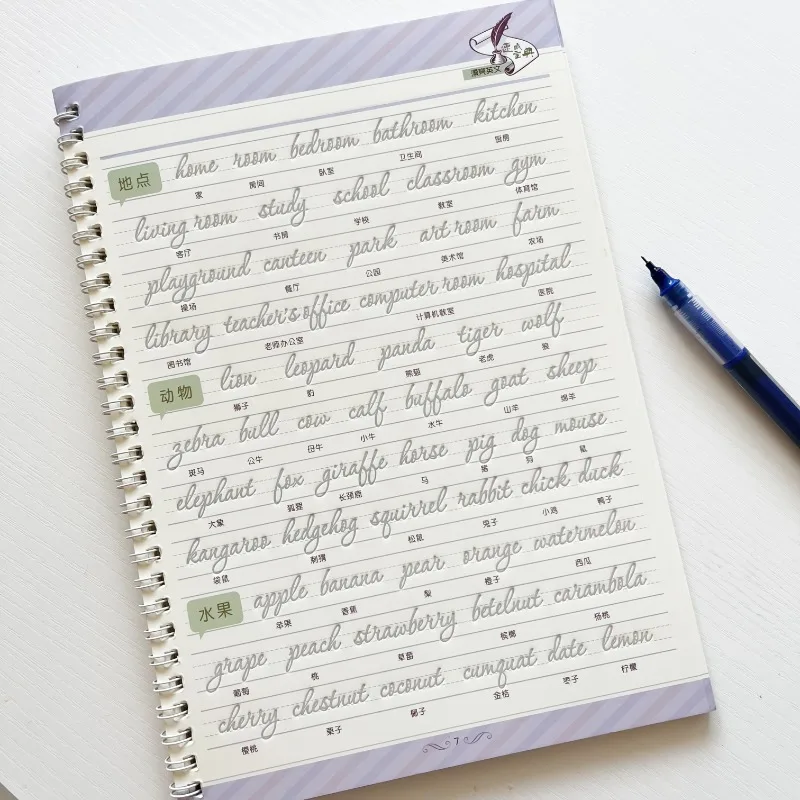 漫舞英文
home room bedroom bathroom kitchen
地点
家 房间 卧室 卫生间 厨房
living room study school classroom gym
客厅 书房 学校 教室 体育馆
playground canteen park art room farm
操场 餐厅 公园 美术馆 农场
library teacher's office computer room hospital
图书馆 老师办公室 计算机教室 医院
动物
lion leopard panda tiger wolf
狮子 豹 熊猫 老虎 狼
zebra bull cow calf buffalo goat sheep
斑马 公牛 母牛 小牛 水牛 山羊 绵羊
elephant fox giraffe horse pig dog mouse
大象 狐狸 长颈鹿 马 猪 狗 鼠
kangaroo hedgehog squirrel rabbit chick duck
袋鼠 刺猬 松鼠 兔子 小鸡 鸭子
水果
apple banana pear orange watermelon
苹果 香蕉 梨 橙子 西瓜
grape peach strawberry betelnut carambola
葡萄 桃 草莓 槟榔 杨桃
cherry chestnut coconut cumquat date lemon
樱桃 栗子 椰子 金桔 枣子 柠檬
7